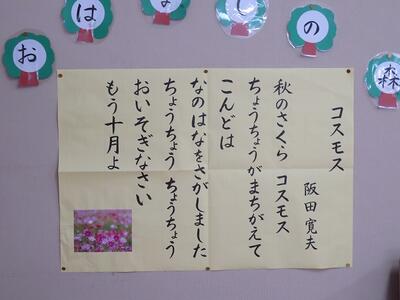 おはなしの森
コスモス
阪田寛夫
秋のさくら コスモス
ちょうちょうがまちがえて
こんどは
なのはなをさがしました
ちょうちょう ちょうちょう
おいそぎなさい
もう十月よ